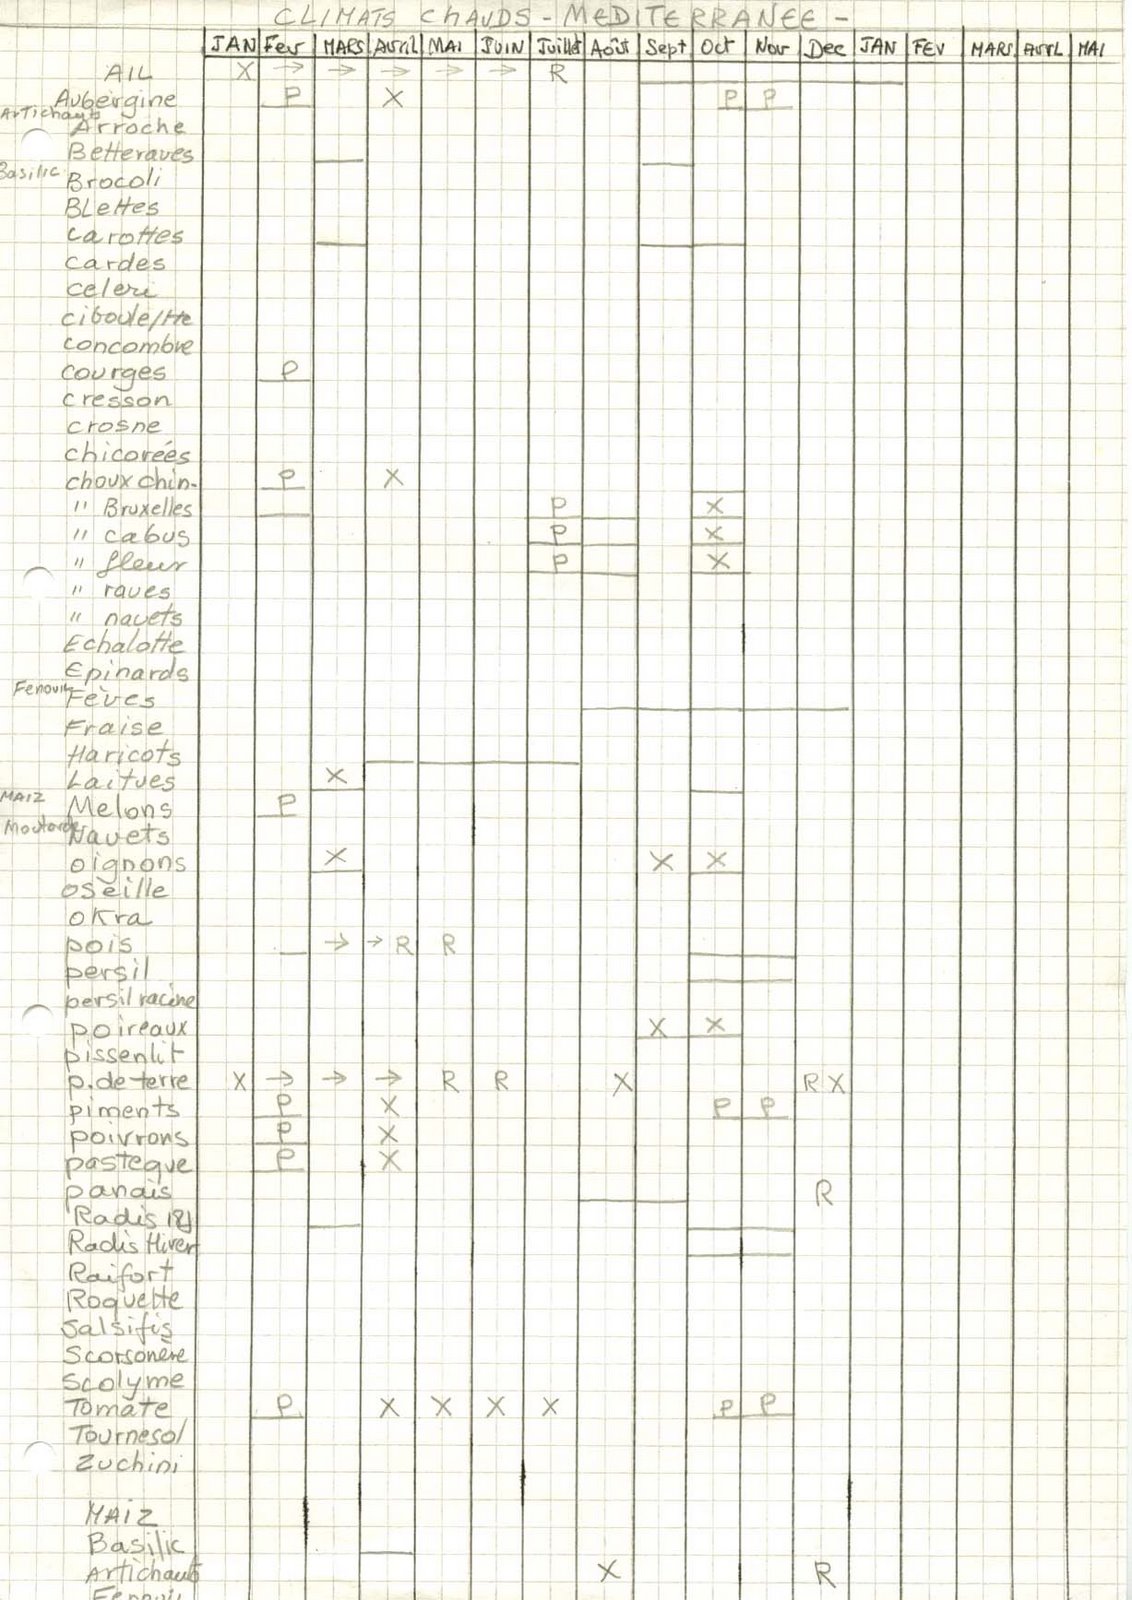 CLIMATS CHAUDS - MEDITERRANEE -
JAN Fev MARS Avril MAI JUIN Juillet Août Sept Oct Nov Dec JAN FEV MARS AVRIL MAI
AIL X → → → → → R
Aubergine P X P P
Artichauts
Arroche
Betteraves
Basilic
Brocoli
BLettes
carottes
cardes
celeri
ciboule/tte
concombre
courges P
cresson
crosne
chicorées
choux chin- P X
" Bruxelles P X
" cabus P X
" fleur P X
" raves
" navets
Echalotte
Epinards
Fenouil
Fèves
Fraise
Haricots
Laitues X
MAIZ
Melons P
Moutarde
Navets
oignons X X X
oseille
okra
pois → → R R
persil
persil racine
poireaux X X
pissenlit
p. de terre X → → → R R X R X
piments P X P P
poivrons P X
pasteque P X
panais R
Radis
Radis Hiver
Raifort
Roquette
Salsifis
Scorsonère
Scolyme
Tomate P X X X X P P
Tournesol
Zuchini
MAIZ
Basilic
Artichauts X R
Fenouil